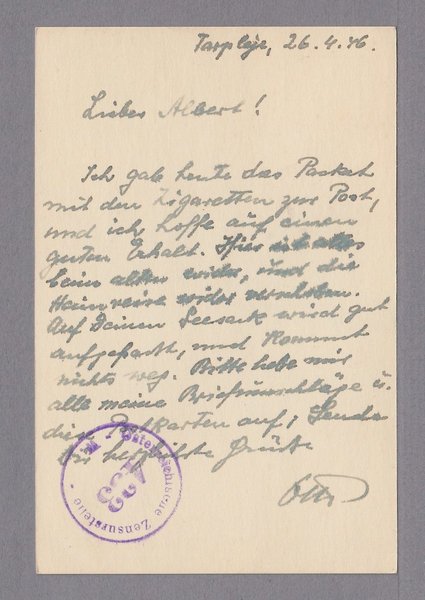 26.4.46.
Lieber Albert!
Ich gab heute das Packet
mit den Zigaretten zur Post,
und ich hoffe auf einen
guten Erhalt. Hier ist alles
beim alten wieder, und die
Heimreise wieder verschoben.
Auf Deinen Seesack wird gut
aufgepasst, und kommt
nichts weg. Bitte hebe mir
alle meine Briefumschläge u.
die Postkarten auf, Sende
Dir herzlichste Grüße
Otto
Österreichische Zensurstelle
433